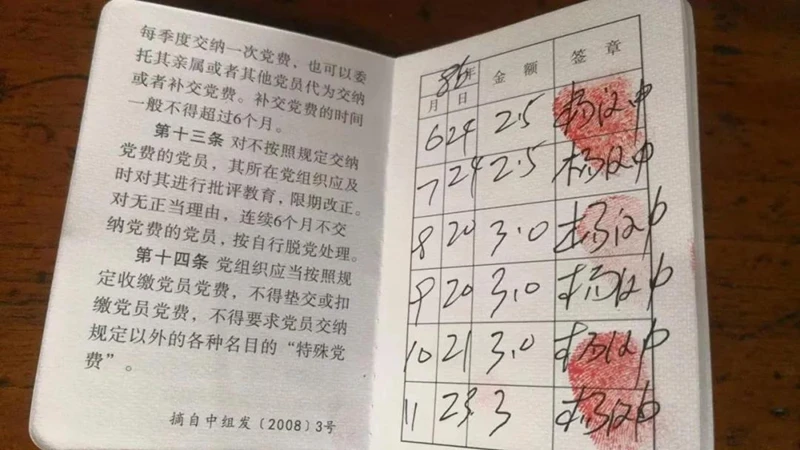 每季度交纳一次党费，也可以委
托其亲属或者其他党员代为交纳
或者补交党费。补交党费的时间
一般不得超过6个月。
第十三条 对不按照规定交纳
党费的党员，其所在党组织应及
时对其进行批评教育，限期改正。
对无正当理由，连续6个月不交
纳党费的党员，按自行脱党处理。
第十四条 党组织应当按照规
定收缴党员党费，不得垫交或扣
缴党员党费，不得要求党员交纳
规定以外的各种名目的“特殊党
费”。
摘自中组发〔2008〕3号
86年 金额 签章
月 日
6 24 2.5 杨汉中
7 24 2.5 杨汉中
8 20 3.0 杨汉中
9 20 3.0 杨汉中
10 21 3.0 杨汉中
11 23 3 杨汉中